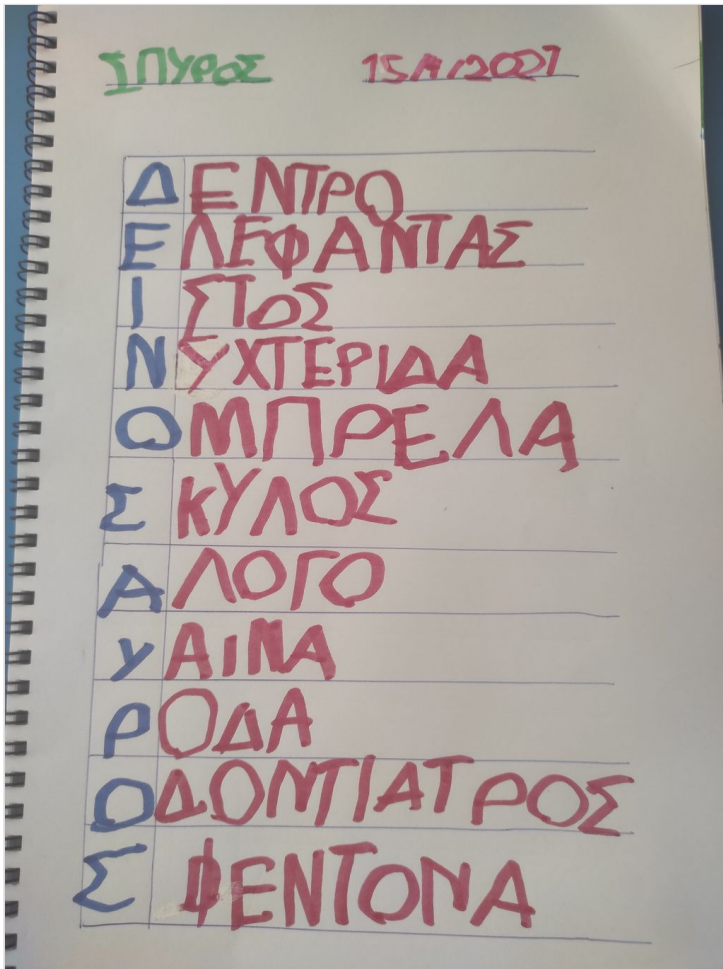 ΣΠΥΡΟΣ 15/1/2021
ΔΕΝΤΡΟ
ΕΛΕΦΑΝΤΑΣ
ΙΣΤΟΣ
ΝΥΧΤΕΡΙΔΑ
ΟΜΠΡΕΛΑ
ΣΚΥΛΟΣ
ΑΛΟΓΟ
ΥΑΙΝΑ
ΡΟΔΑ
ΟΔΟΝΤΙΑΤΡΟΣ
ΣΦΕΝΤΟΝΑ